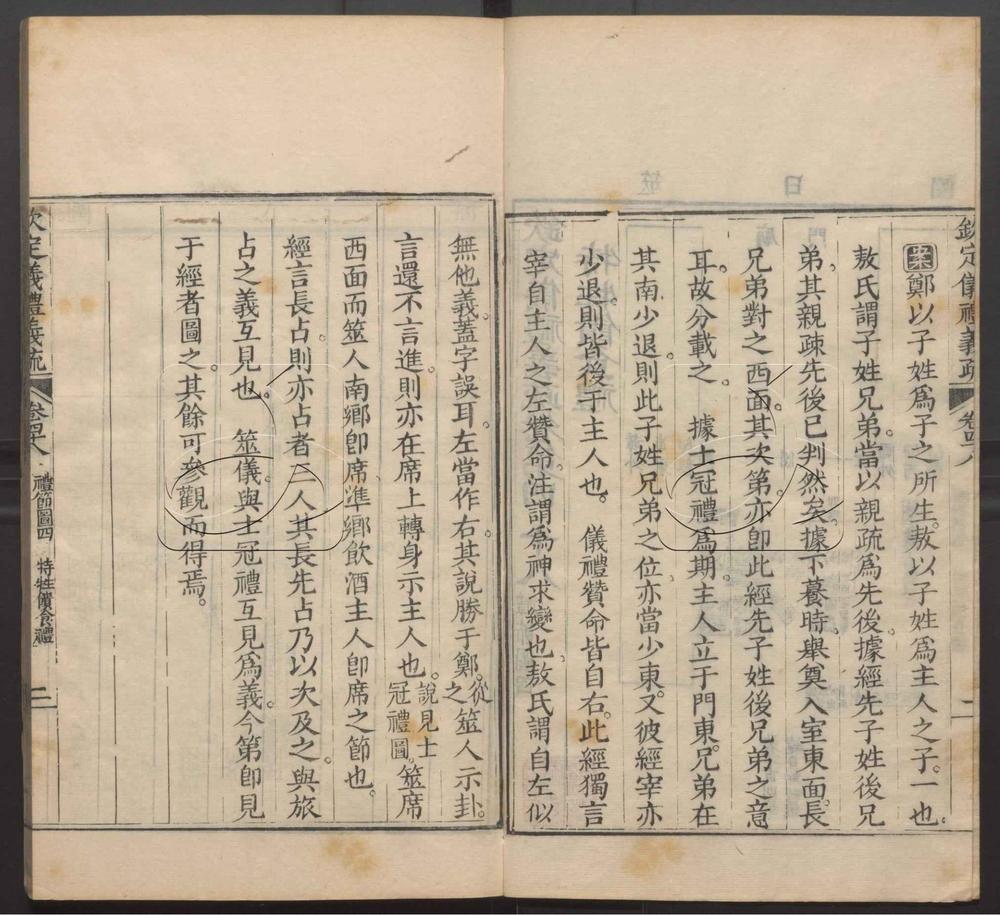 欽定儀禮義疏 卷四八 二
案鄭以子姓爲子之所生。敖以子姓爲主人之子。一也。
敖氏謂子姓兄弟。當以親疏爲先後。據經先子姓後兄
弟。其親疎先後已判然矣。據下養時。舉奠入室東面。長
兄弟對之西面。其次第。亦卽此經先子姓後兄弟之意
耳。故分載之 據士冠禮爲期。主人立于門東。兄弟在
其南少退。則此子姓兄弟之位亦當少東。又彼經宰亦
少退。則皆後于主人也。 儀禮贊命皆自右。此經獨言
宰自主人之左贊命。注謂爲神求變也。敖氏謂自左似
無他義。蓋字誤耳。左當作右。其說勝于鄭。從之 筮人示卦。
言還不言進。則亦在席上轉身示主人也。說見士冠禮圖。筮席
西面而筮人南鄉卽席。準鄉飮酒主人卽席之節也。
經言長占。則亦占者三人其長先占乃以次及之。與旅
占之義互見也。 筮儀與士冠禮互見爲義。今第卽見
于經者圖之。其餘可參觀而得焉。
欽定儀禮義疏 卷四八 禮節圖四 特牲饋食禮 三